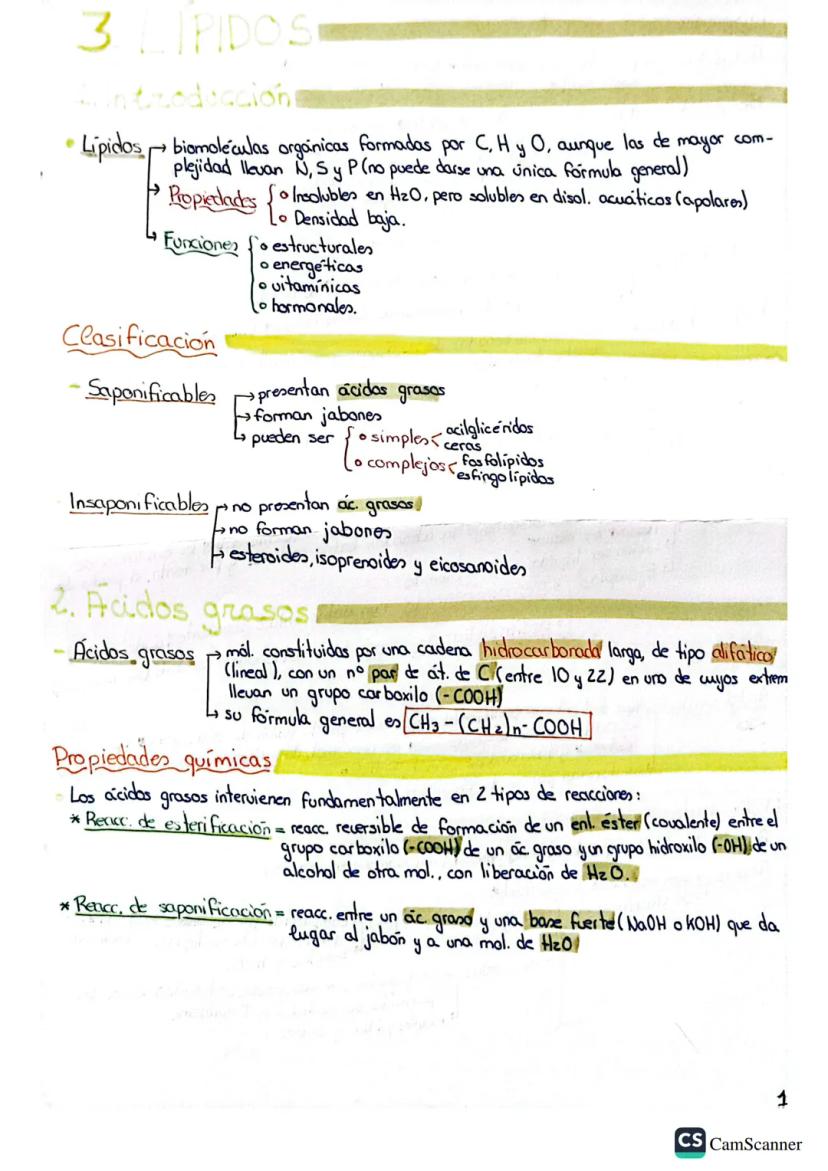 3. LÍPIDOS
1. Introducción
• Lípidos → biomoléculas orgánicas formadas por C, H y O, aunque las de mayor com-
plejidad llevan N, S y P (no puede darse una única fórmula general)
→ Propiedades { o Insolubles en H2O, pero solubles en disol. acuáticos (apolares)
o Densidad baja.
→ Funciones { o estructurales
o energéticas
o vitamínicas
o hormonales.
Clasificación
- Saponificables → presentan ácidos grasos
→ forman jabones
→ pueden ser { o simples < acilglicéridos
ceras
o complejos < fosfolípidos
esfingolípidos
Insaponificables → no presentan ác. grasos
→ no forman jabones
→ esteroides, isoprenoides y eicosanoides
2. Ácidos grasos
- Ácidos grasos → mól. constituidas por una cadena hidrocarbonada larga, de tipo alifático
(lineal), con un nº par de át. de C (entre 10 y 22) en uno de cuyos extrem
llevan un grupo carboxilo (-COOH)
→ su fórmula general es CH3-(CH2)n-COOH
Propiedades químicas
- Los ácidos grasos intervienen fundamentalmente en 2 tipos de reacciones:
* Reacc. de esterificación = reacc. reversible de formación de un enl. éster (covalente) entre el
grupo carboxilo (-COOH) de un ác. graso y un grupo hidroxilo (-OH) de un
alcohol de otra mol., con liberación de H2O.
* Reacc. de saponificación = reacc. entre un ác. graso y una base fuerte (NaOH o KOH) que da
lugar al jabón y a una mol. de H2O
1
CS CamScanner